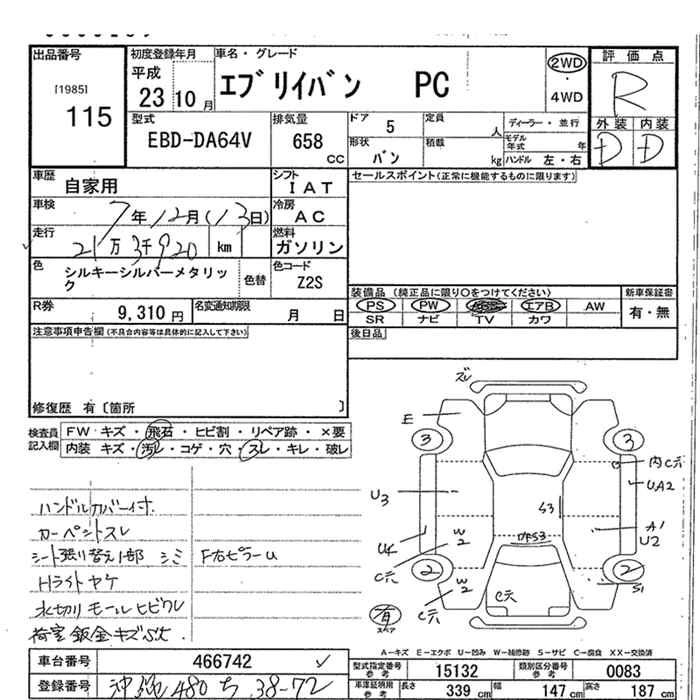 出品番号 初度登録年月 車名・グレード 評価点
[1985] 115
平成 23 10月
エブリイバン PC
2WD ・ 4WD
R
外装 内装
D D
型式 EBD-DA64V
排気量 658 CC
ドア 5 定員 人
ディーラー・並行
モデル年式 年
形状 バン 積載 kg ハンドル 左・右
車歴 自家用
シフト IAT
セールスポイント(正常に機能するものに限ります)
車検 7年12月(13日)
冷房 AC
走行 21万3千920 km
燃料 ガソリン
色 シルキーシルバーメタリック 色替
色コード Z2S
装備品 (純正品に限り○をつけてください) 新車保証書
PS PW エアB AW 有・無
SR ナビ TV カワ
R券 9,310 円 名変通知期限 月 日
注意事項申告欄 (不具合内容等は具体的に記入して下さい) 後日品
修復歴 有〔箇所 〕
検査員記入欄
FW キズ・飛石・ヒビ割・リペア跡・×要
内装 キズ・汚レ・コゲ・穴・スレ・キレ・破レ
ハンドルカバー付
カーペントスレ
シート張り替え1部 シミ F右ピラーU
Hライトヤケ
水切りモールヒビワレ
荷室 鈑金キズ
ズレ
E
3 3
内C穴
UA2
U3
S3
A1
U2
W2
C穴
2 2
W2
C穴
C穴
S1
有
スペア
A-キズ E-エクボ U-凹み W-補修跡 S-サビ C-腐食 XX-交換済
車台番号 466742
型式指定番号 参考 15132 類別区分番号 参考 0083
登録番号 沖縄 480 ち 38-72
車庫証明用 参考 長さ 339 cm 幅 147 cm 高さ 187 cm